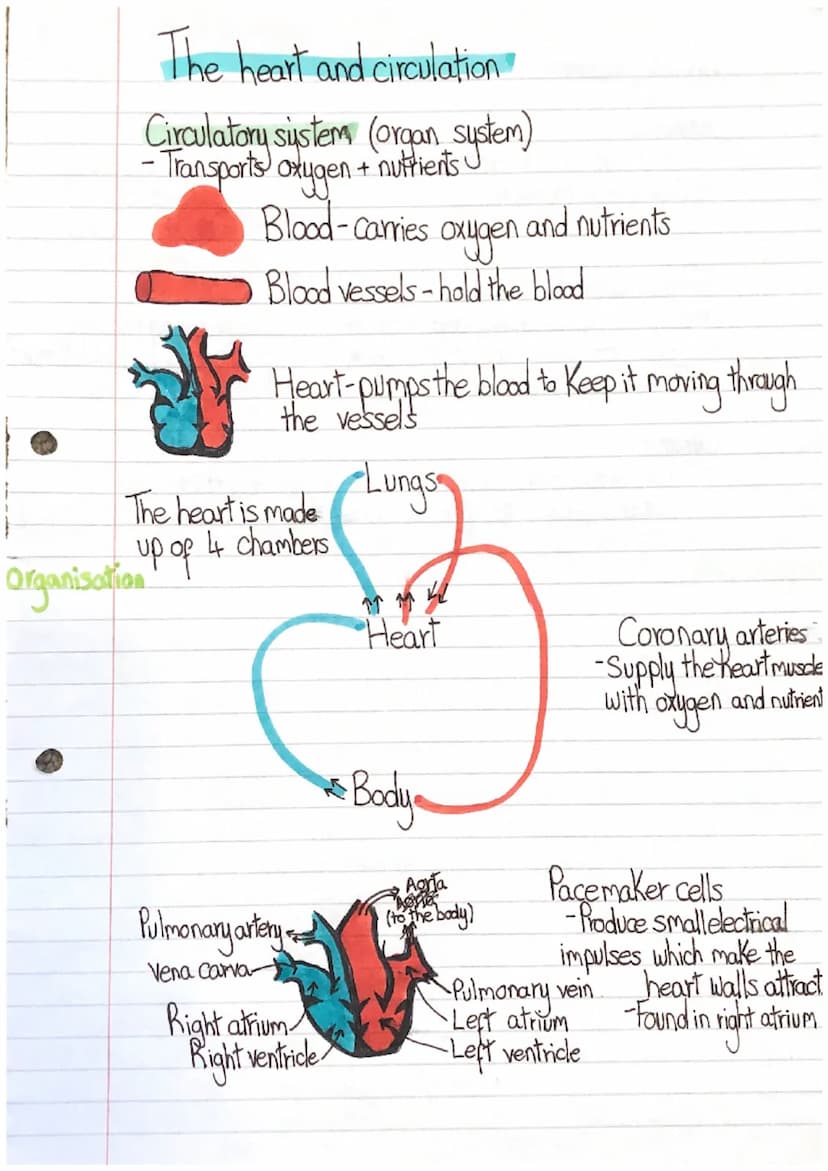 The heart and circulation
Circulatory system (organ system)
- Transports oxygen + nutrients
Blood - carries oxygen and nutrients
Blood vessels - hold the blood
Heart - pumps the blood to Keep it moving through
the vessels
Lungs
The heart is made
up of 4 chambers
Organisation
Heart
Coronary arteries
- Supply the heart muscle
with oxygen and nutrient
Body
Aorta
(to the body)
Pulmonary artery
Vena carva
Right atrium
Right ventricle
Pulmonary vein
Left atrium
Left ventricle
Pacemaker cells
- Produce small electrical
impulses which make the
heart walls attract
- Found in right atrium